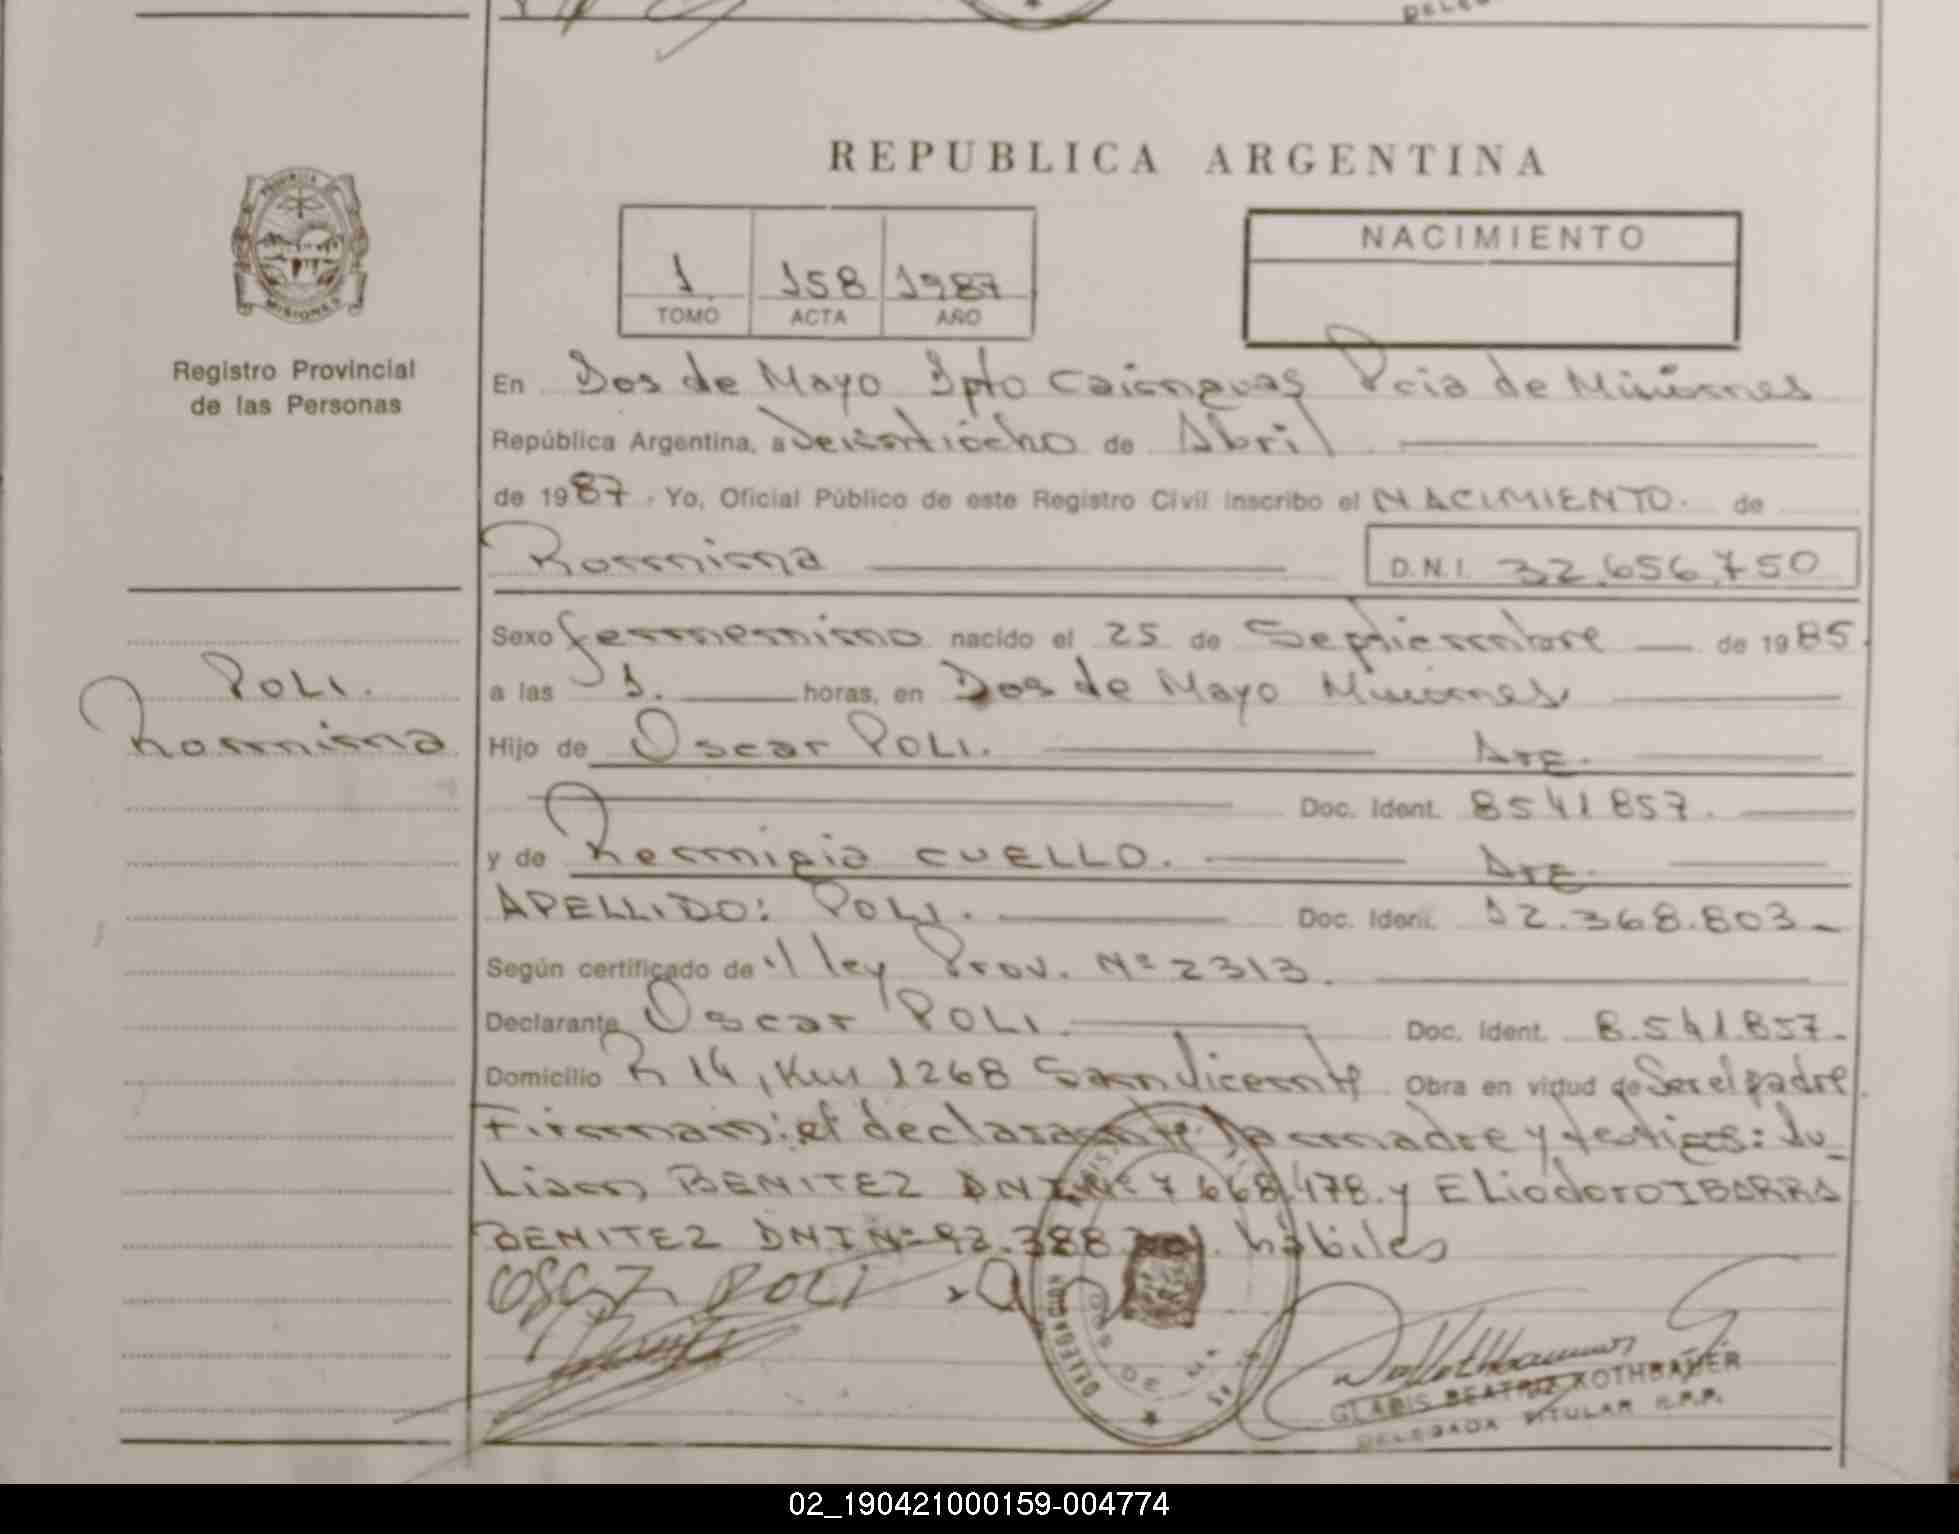 REPUBLICA ARGENTINA
PROVINCIA
MISIONES
Registro Provincial
de las Personas
1 158 1987
TOMO ACTA AÑO
NACIMIENTO
En Dos de Mayo Dpto Cainguas Pcia de Misiones
República Argentina, a Veintiocho de Abril
de 1987. Yo, Oficial Público de este Registro Civil inscribo el NACIMIENTO. de
Rommina
D.N.I. 32.656.750
Sexo femenino nacido el 25 de Septiembre de 1985
a las 1. horas, en Dos de Mayo Misiones
POLI.
Rommina
Hijo de Oscar POLI. Arg.
Doc. Ident. 8541857.
y de Remigia CUELLO. Arg.
APELLIDO: POLI. Doc. Ident. 12.368.803-
Según certificado de ley Prov. Nº 2313.
Declarante Oscar POLI. Doc. Ident. 8.541.857.-
Domicilio R 14, Km 1268 San Vicente Obra en virtud de Ser el padre
Firman: el declarante la madre y testigos: Ju_
Lian BENITEZ DNI Nº 7 668.478. y Eliodoro IBARRA
BENITEZ DNI Nº 92.388 hábiles
OSCAR POLI
GLADIS BEATRIZ KOTHBAUER
DELEGADA TITULAR R.P.P.
02_190421000159-004774